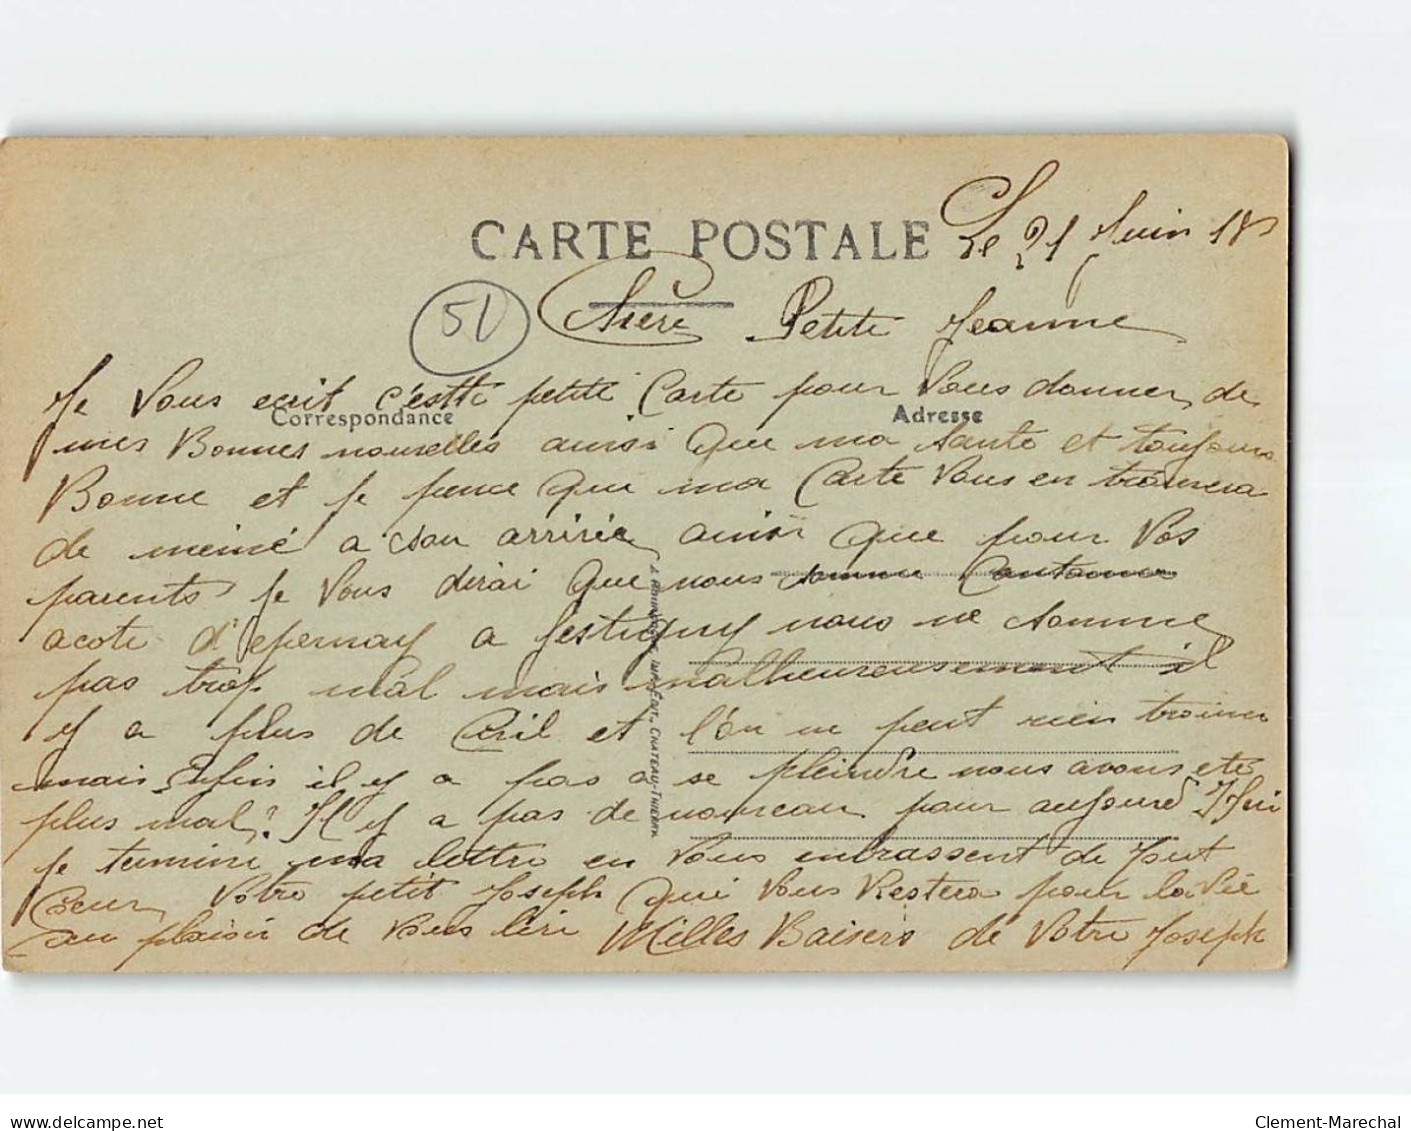 CARTE POSTALE
Le 21 Juin 18
51
Chere Petite Jeanne
Je Vous ecrit c'estte petite Carte pour Vous donner de
Correspondance
Adresse
mes Bonnes nouvelles ainsi que ma sante et toujours
Bonne et je pence que ma Carte Vous en trouvera
de meme a son arrivie ainsi que pour Vos
parents je Vous dirai que nous somme Cantonne
acote d'epernay a festigny nous ne somme
pas trop mal mais malheureusement il
y a plus de Civil et l'on ne peut rien trouver
mais enfin il y a pas a se pleindre nous avons ete
plus mal. Il y a pas de nouveau pour aujourd Hui
je termine ma lettre en Vous enbrassent de tout
Coeur Votre petit Joseph qui Vous Restera pour la Vie
au plaisir de Vous lire Milles Baisers de Votre Joseph
IMP. EDIT. CHATEAU-THIERRY
www.delcampe.net
Clement-Marechal